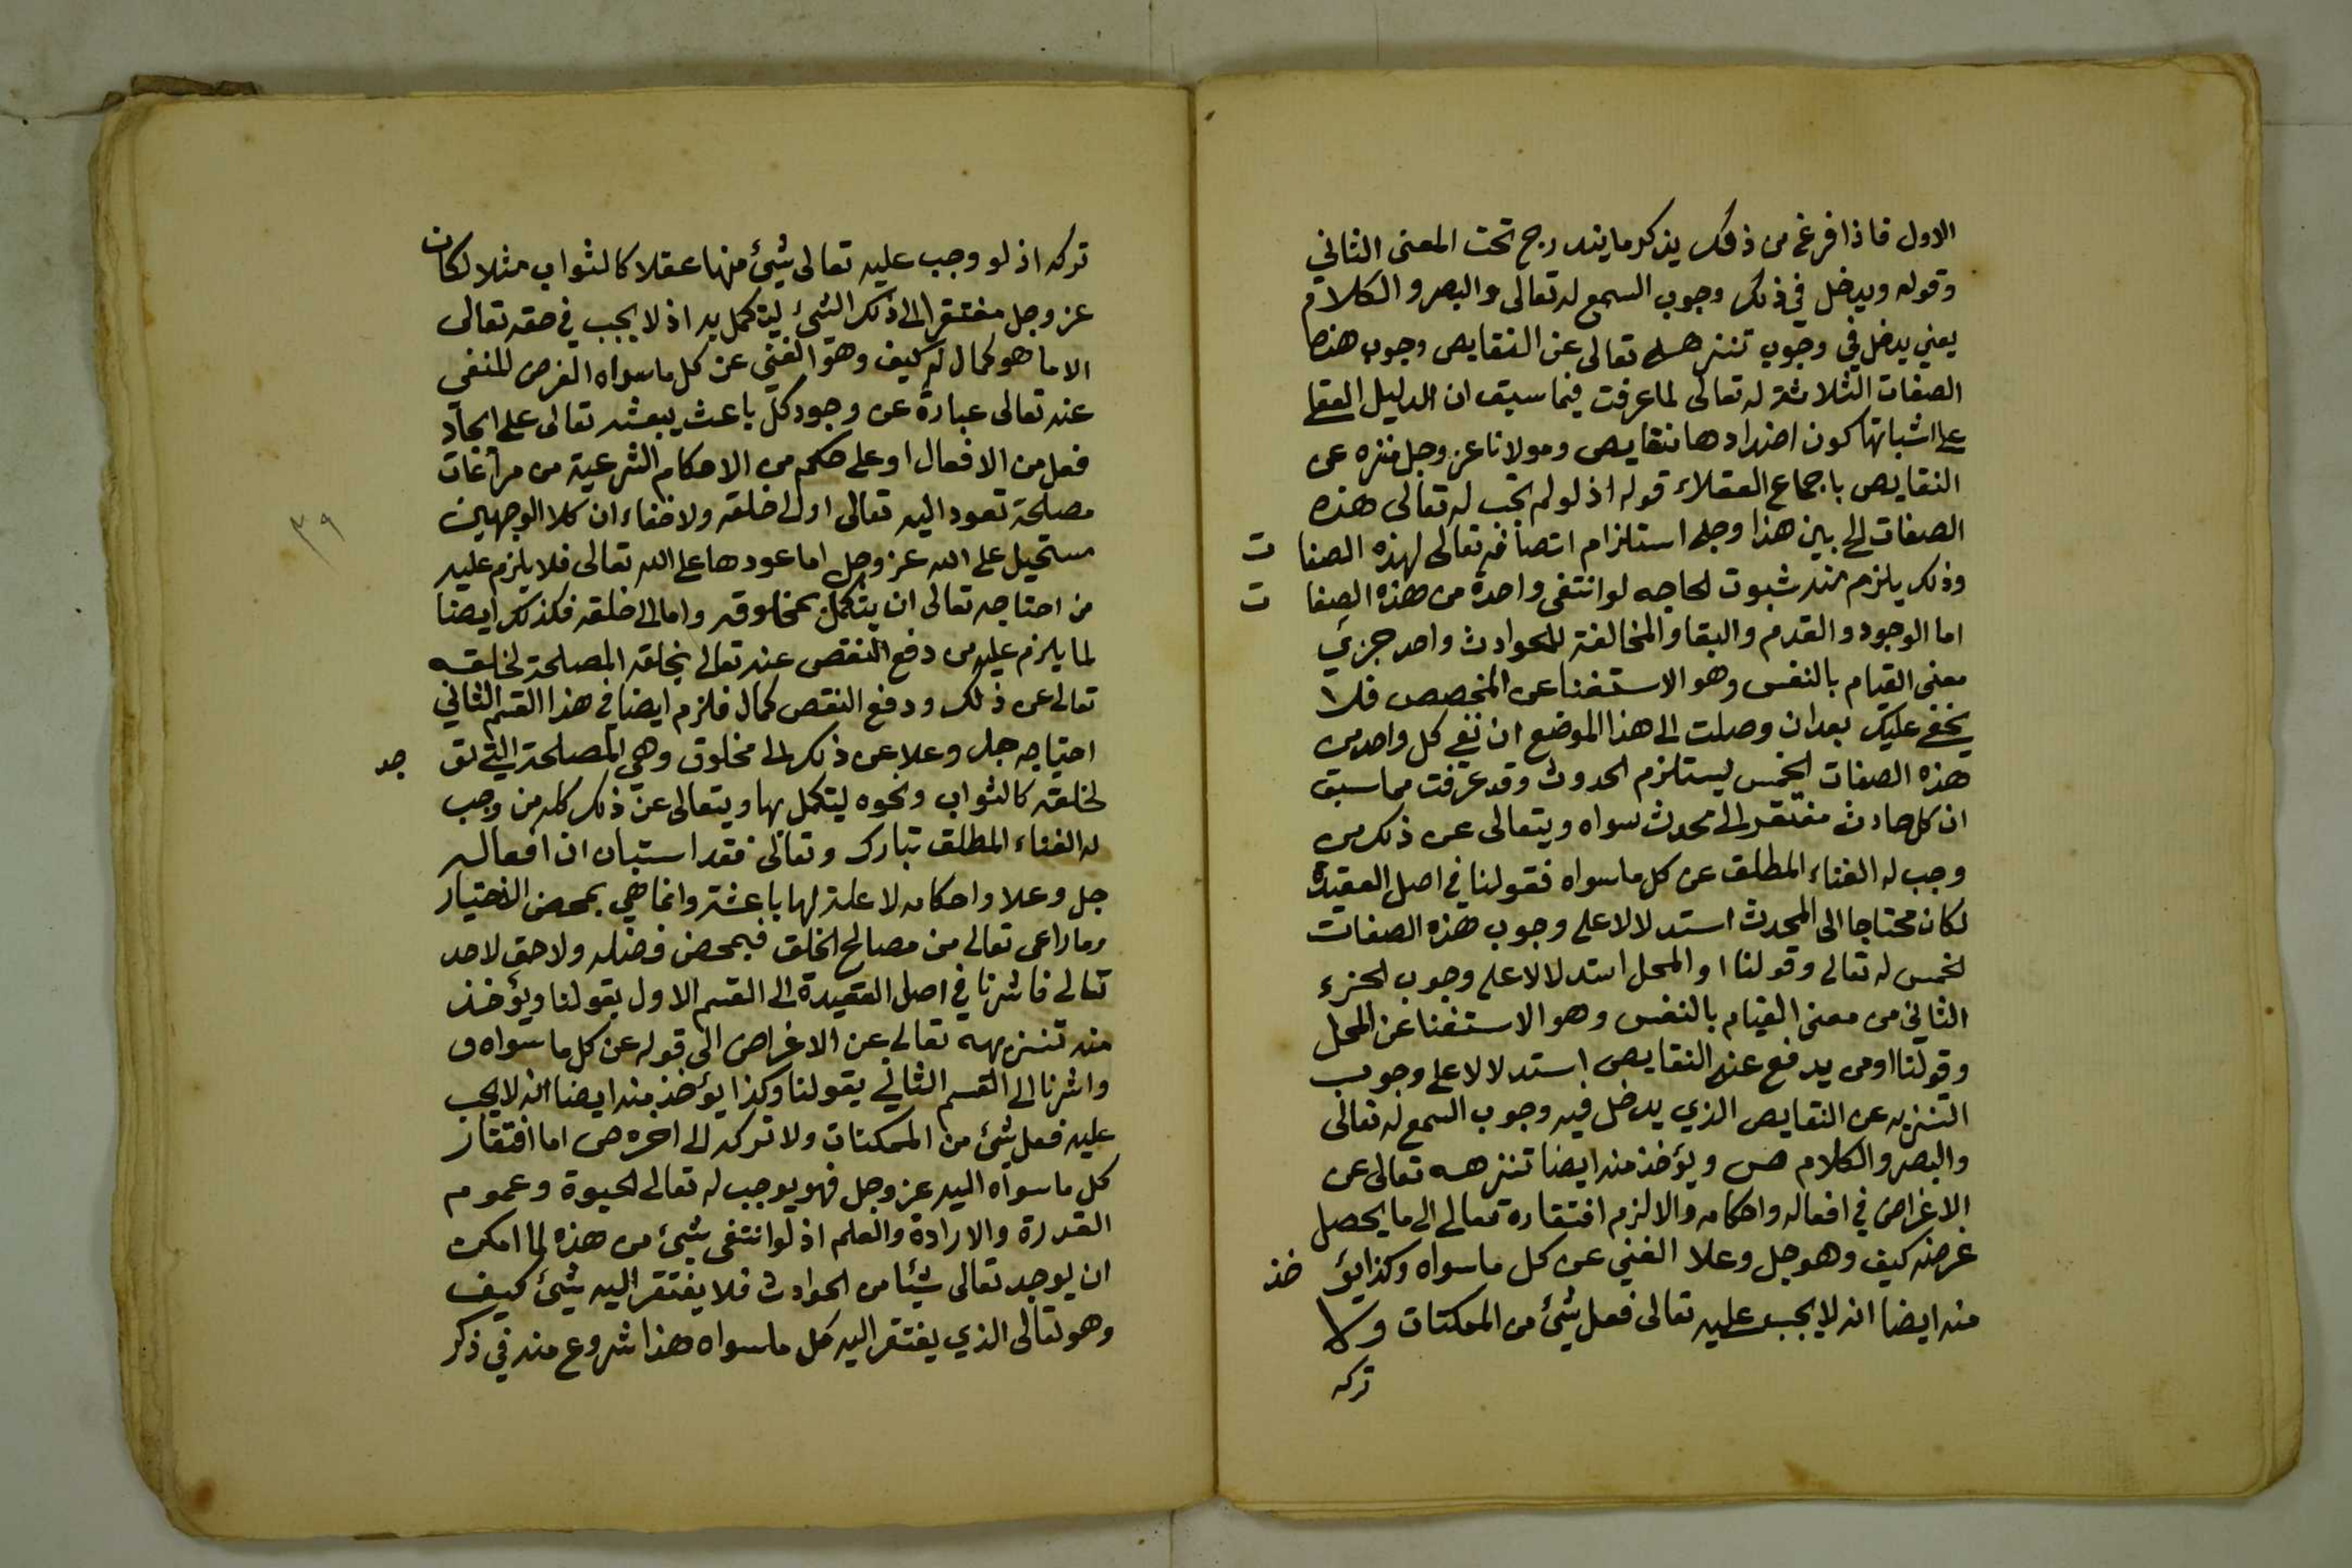 الاول فاذا فرغ من ذلك يذكر ما يندرج تحت المعنى الثاني
وقوله ويدخل في ذلك وجوب السمع له تعالى والبصر والكلام
يعني يدخل في وجوب تنزهه تعالى عن النقايص وجوب هذه
الصفات الثلاثة له تعالى لما عرفت فيما سبق ان الدليل العقلي
على اثباتها كون اضدادها نقايص ومولانا عز وجل منزه عن
النقايص باجماع العقلاء قوله اذ لو لم تجب له تعالى هذه
الصفات الى بين هذا وجه استلزام اتصافه تعالى لهذه الصفات
وذلك يلزم منه ثبوت الحاجه لو انتفى واحدة من هذه الصفات
اما الوجود والقدم والبقا والمخالفة للحوادث واحد جزئي
معنى القيام بالنفس وهو الاستغنا عن المخصص فلا
يخفى عليك بعد ان وصلت الى هذا الموضع ان نفي كل واحد من
هذه الصفات الخمس يستلزم الحدوث وقد عرفت مما سبق
ان كل حادث مفتقر الى محدث سواه ويتعالى عن ذلك من
وجب له الغناء المطلق عن كل ما سواه فقولنا في اصل العقيدة
لكان محتاجا الى المحدث استدلالا على وجوب هذه الصفات
الخمس له تعالى وقولنا او المحل استدلالا على وجوب الجزء
الثاني من معنى القيام بالنفس وهو الاستغنا عن المحل
وقولنا او من يدفع عنه النقايص استدلالا على وجوب
التنزيه عن النقايص الذي يدخل فيه وجوب السمع له تعالى
والبصر والكلام ص ويؤخذ منه ايضا تنزهه تعالى عن
الاغراض في افعاله واحكامه والا لزم افتقاره تعالى الى ما يحصل
غرضه كيف وهو جل وعلا الغني عن كل ما سواه وكذا يؤخذ
منه ايضا انه لا يجب عليه تعالى فعل شيئ من الممكنات ولا
تركه
تركه اذ لو وجب عليه تعالى شيئ منها عقلا كالثواب مثلا لكان
عز وجل مفتقرا الى ذلك الشيئ ليتكمل به اذ لا يجب في حقه تعالى
الا ما هو كمال له كيف وهو الغني عن كل ما سواه الغرض المنفي
عنه تعالى عبارة عن وجود كل باعث يبعثه تعالى على ايجاد
فعل من الافعال او على حكم من الاحكام الشرعية من مراعات
مصلحة تعود اليه تعالى او الى خلقه ولا خفاء ان كلا الوجهين
مستحيل على الله عز وجل اما عودها على الله تعالى فلا يلزم عليه
من احتاجه تعالى ان يتكمل بمخلوقه واما الى خلقه فكذلك ايضا
لما يلزم عليه من دفع النقص عنه تعالى بخلقه المصلحة لخلقه
تعالى عن ذلك ودفع النقص كمال فلزم ايضا في هذا القسم الثاني
احتياجه جل وعلا عن ذلك الى مخلوق وهي المصلحة التي توجد
لخلقه كالثواب ونحوه ليتكمل بها ويتعالى عن ذلك كله من وجب
له الغناء المطلق تبارك وتعالى فقد استبان ان افعاله
جل وعلا واحكامه لا علة لها باعثة وانما هي بمحض الاختيار
وما راعى تعالى من مصالح الخلق فبمحض فضله ولا حق لاحد
تعالى فاشرنا في اصل العقيدة الى القسم الاول بقولنا ويؤخذ
منه تنزيهه تعالى عن الاغراض الى قوله عن كل ما سواه و
واشرنا الى القسم الثاني بقولنا وكذا يؤخذ منه ايضا انه لا يجب
عليه فعل شيئ من الممكنات ولا تركه الى اخره ص اما افتقار
كل ما سواه اليه عز وجل فهو يوجب له تعالى الحيوة وعموم
القدرة والارادة والعلم اذ لو انتفى شيئ من هذه لما امكن
ان يوجد تعالى شيئا من الحوادث فلا يفتقر اليه شيئ كيف
وهو تعالى الذي يفتقر اليه كل ما سواه هذا شروع منه في ذكر
٣٩